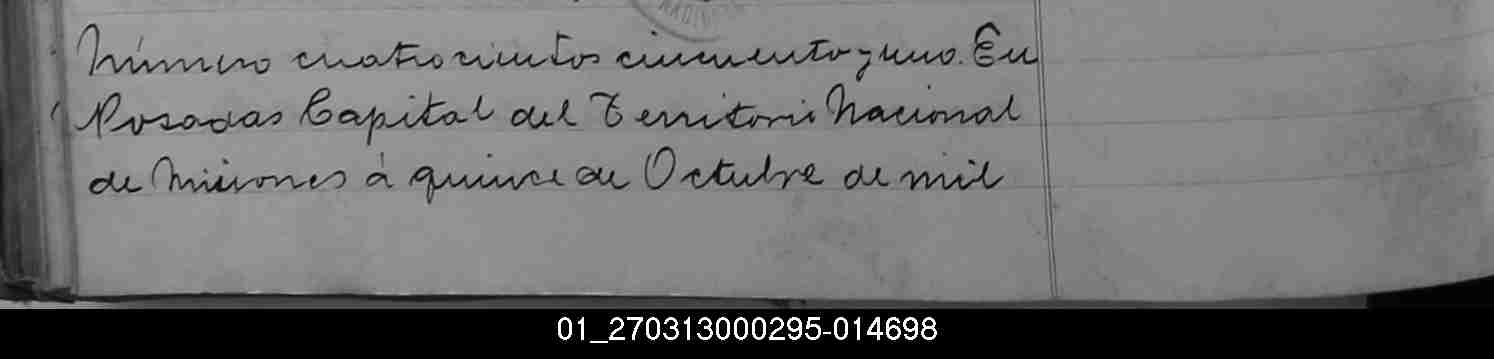 Número cuatrocientos cincuenta y uno. En
Posadas Capital del Territorio Nacional
de Misiones á quince de Octubre de mil
01_270313000295-014698